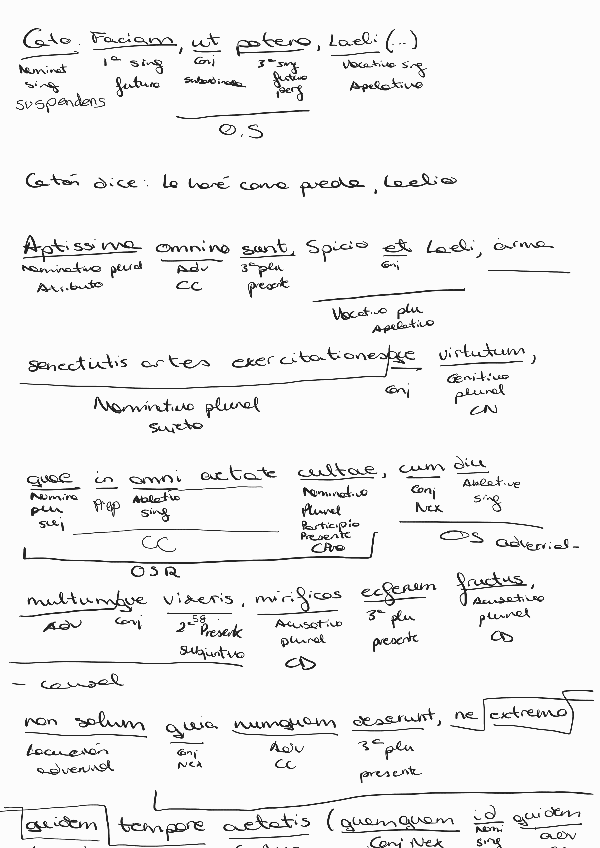 Cato. Faciam, ut potero, Laeli (...)
Nominat 1ª sing Conj 3ª sing Vocativo sing
sing futuro subordinada futuro Apelativo
suspendens perf
O.S
Catón dice: lo haré como pueda, Laelio
Aptissima omnino sunt, Spicio et Laeli, arma
Nominativo plural Adv 3ª plu Conj
Atributo CC presente
Vocativo plu
Apelativo
senectutis artes exercitationesque virtutum,
Nominativo plural Conj Genitivo
sujeto plural
CN
quae in omni aetate cultae, cum diu
Nomina Prep Ablativo Nominativo Conj Ablativo
plu sing Plural Nex sing
suj Participio
Presente
CC OS adverbial-
OSR
multumque vixeris, mirificos ecferunt fructus,
Adv Conj 2ª sg Presente Acusativo 3ª plu Acusativo
subjuntivo plural presente plural
CD CD
- causal
non solum quia numquam deserunt, ne extremo
Locución Conj Adv 3ª plu
adverbial Nex CC presente
quidem tempore aetatis (quamquam id quidem
Conj Nex Nomi adv
sing